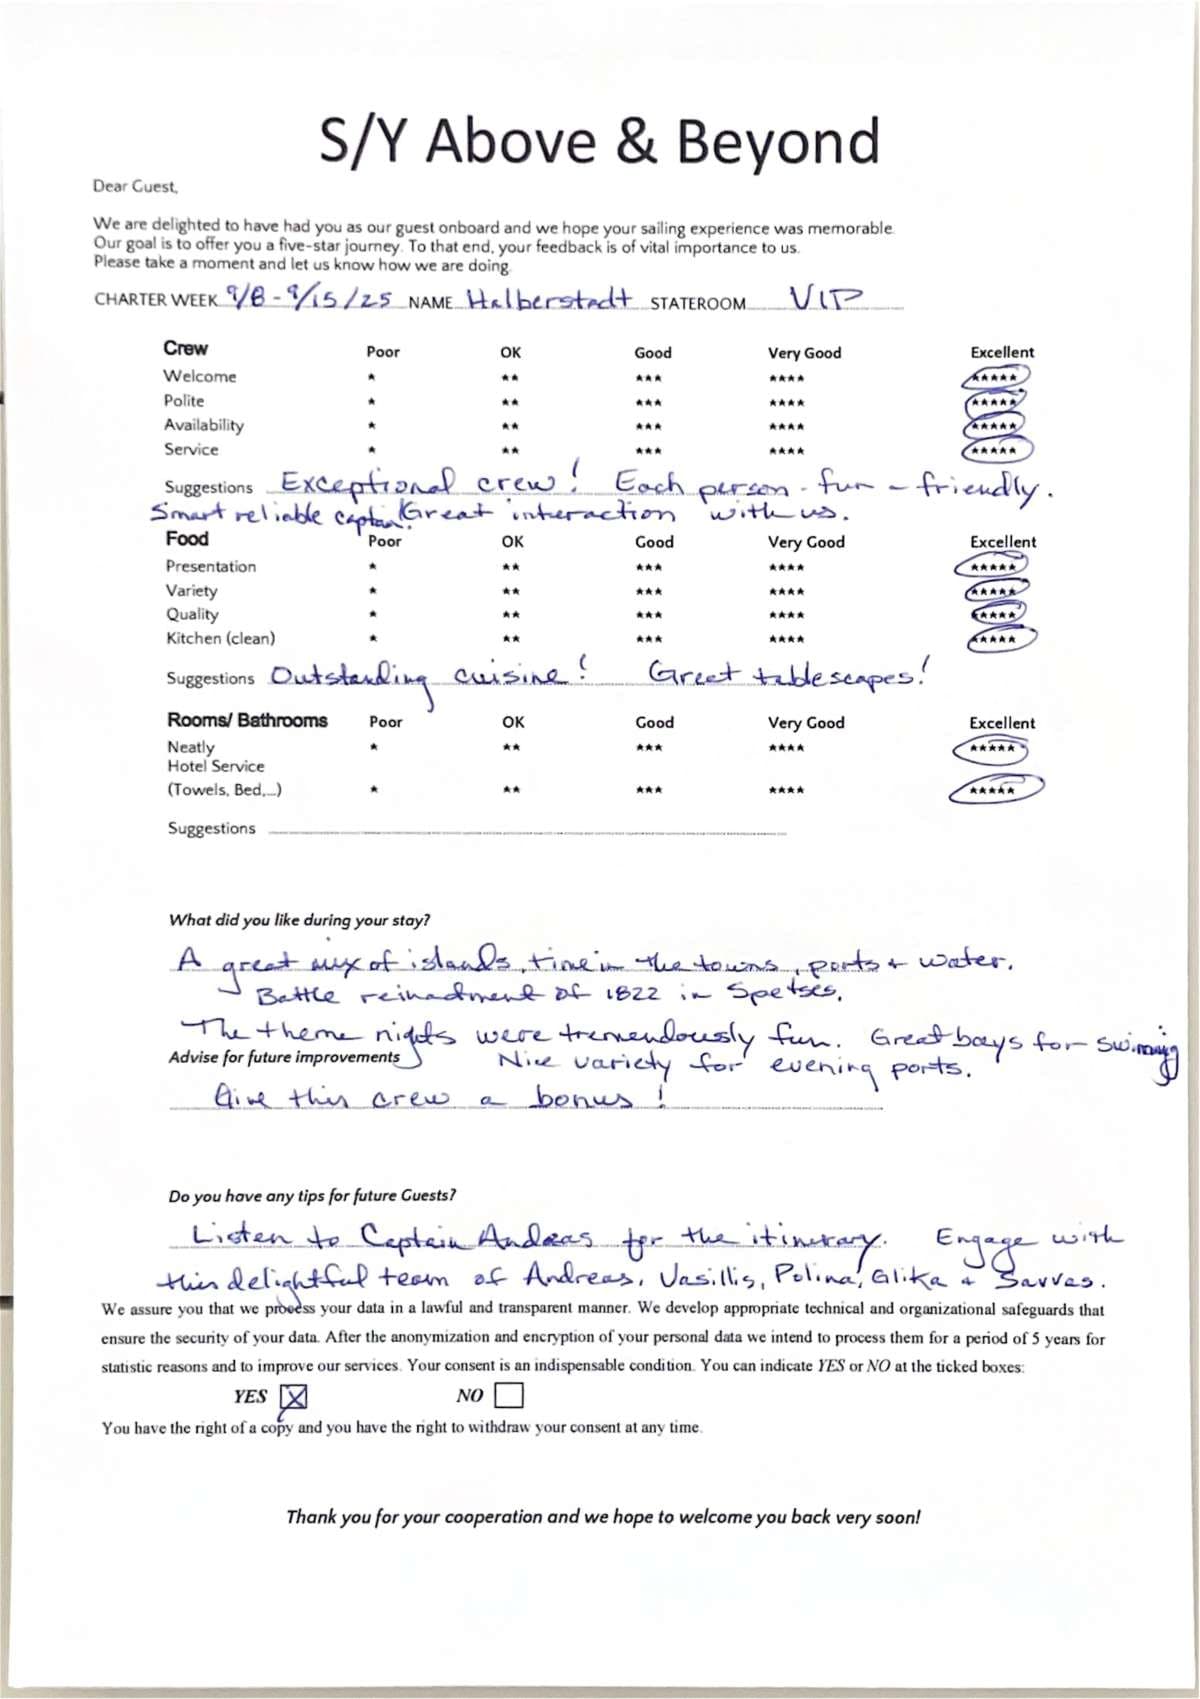 S/Y Above & Beyond
Dear Guest,
We are delighted to have had you as our guest onboard and we hope your sailing experience was memorable.
Our goal is to offer you a five-star journey. To that end, your feedback is of vital importance to us.
Please take a moment and let us know how we are doing.
CHARTER WEEK 9/8 - 9/15/25 NAME Halberstadt STATEROOM VIP
Crew Poor OK Good Very Good Excellent
Welcome * ** *** **** *****
Polite * ** *** **** *****
Availability * ** *** **** *****
Service * ** *** **** *****
Suggestions Exceptional crew! Each person - fun - friendly.
Smart reliable captain! Great interaction with us.
Food Poor OK Good Very Good Excellent
Presentation * ** *** **** *****
Variety * ** *** **** *****
Quality * ** *** **** *****
Kitchen (clean) * ** *** **** *****
Suggestions Outstanding cuisine! Great tablescapes!
Rooms/ Bathrooms Poor OK Good Very Good Excellent
Neatly * ** *** **** *****
Hotel Service
(Towels, Bed,...) * ** *** **** *****
Suggestions
What did you like during your stay?
A great mix of islands, time in the towns, ports + water.
Battle reinactment of 1822 in Spetses.
The theme nights were tremendously fun. Great bays for swimming
Advise for future improvements Nice variety for evening ports.
Give this crew a bonus!
Do you have any tips for future Guests?
Listen to Captain Andreas for the itinerary. Engage with
this delightful team of Andreas, Vasillis, Polina, Glika + Savvas.
We assure you that we process your data in a lawful and transparent manner. We develop appropriate technical and organizational safeguards that
ensure the security of your data. After the anonymization and encryption of your personal data we intend to process them for a period of 5 years for
statistic reasons and to improve our services. Your consent is an indispensable condition. You can indicate YES or NO at the ticked boxes:
YES X NO
You have the right of a copy and you have the right to withdraw your consent at any time.
Thank you for your cooperation and we hope to welcome you back very soon!